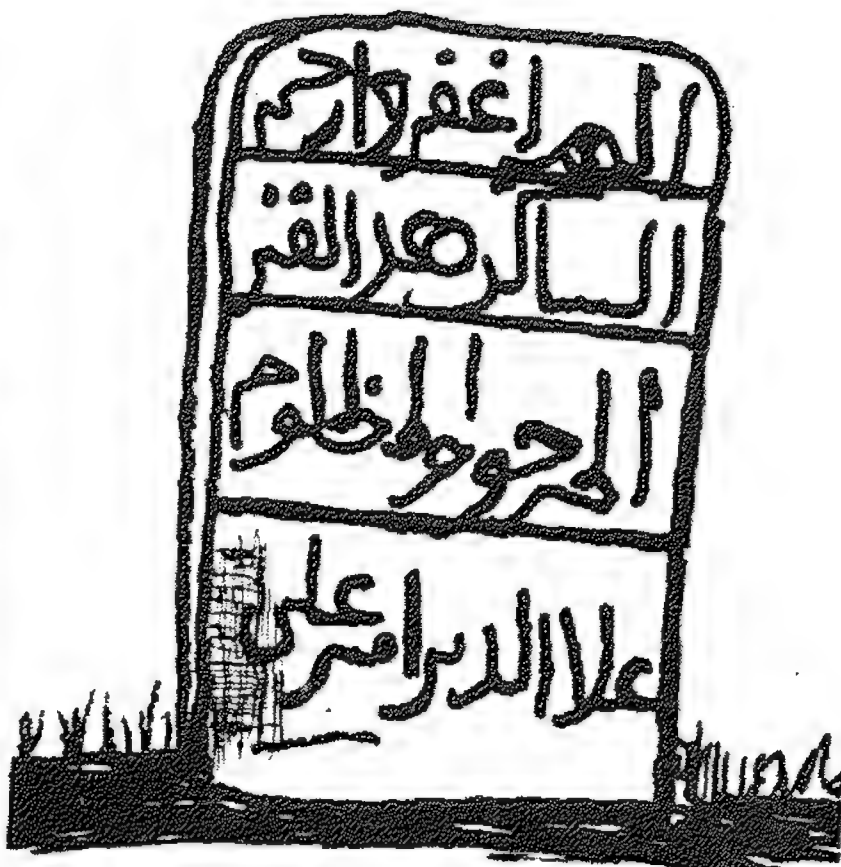 اللهم اغفر وارحم
الساكن هدا القبر
المرحوم المظلوم
علا الدين امير علي